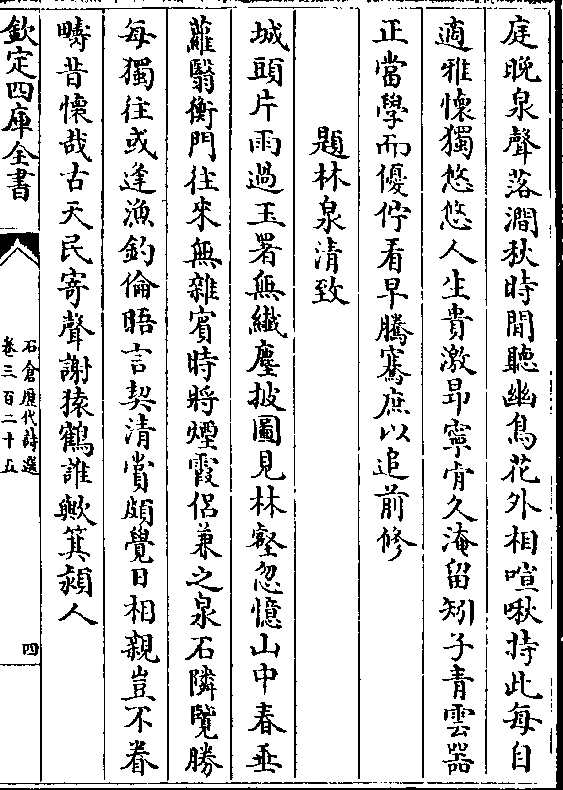 庭晚泉聲落澗秋時聞聽幽鳥花外相喧啾持此每自
適雅懷獨悠悠人生貴激昂寧肯久淹留矧子青雲器
正當學而優佇看早騰騫庶以追前修
題林泉清致
城頭片雨過玉署無纖塵披圖見林壑忽憶山中春垂
蘿翳衡門往來無雜賓時將煙霞侶兼之泉石隣覽勝
每獨往或逢漁釣倫晤言契清賞頗覺日相親豈不眷
疇昔懷哉古天民寄聲謝猿鶴誰歟箕潁人
欽定四庫全書
石倉歷代詩選
卷三百二十五
四